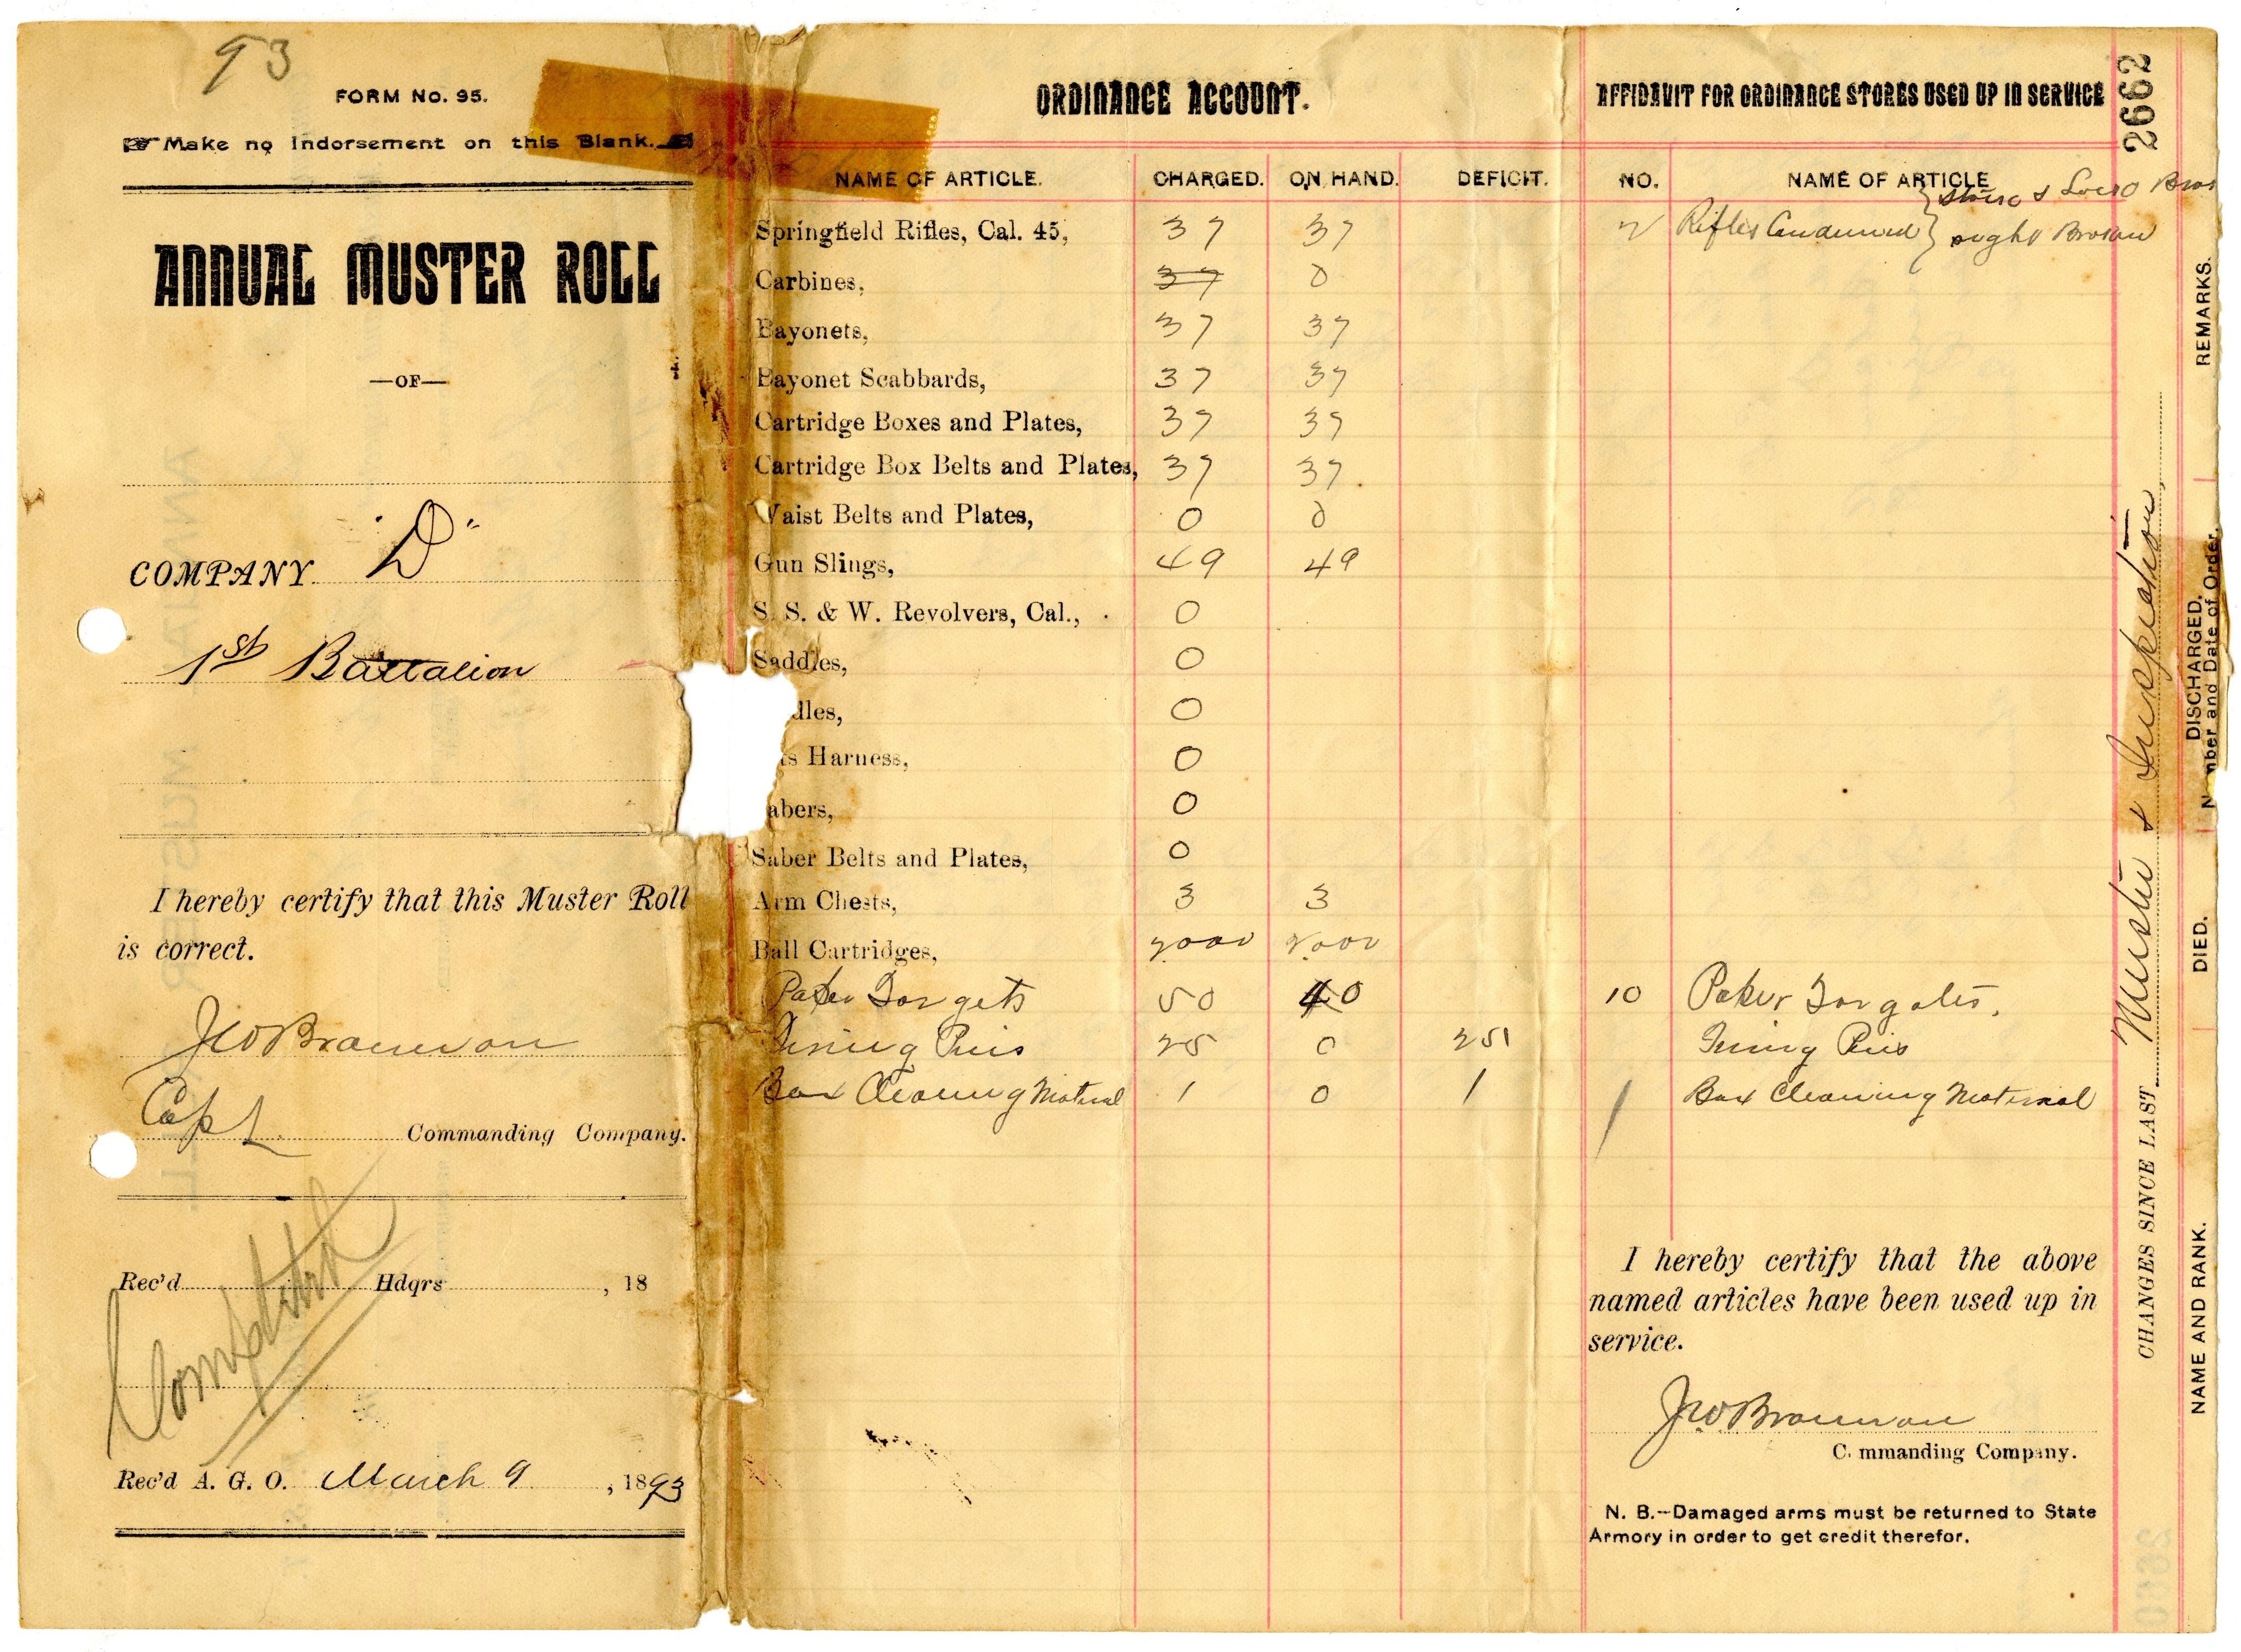 93
FORM No. 95.
Make no Indorsement on this Blank.
ANNUAL MUSTER ROLL
—OF—
COMPANY "D"
1st Battalion
I hereby certify that this Muster Roll
is correct.
Capt
Commanding Company.
Rec'd Hdqrs , 18
Rec'd A. G. O. March 9 , 1893
ORDINANCE ACCOUNT.
NAME OF ARTICLE. CHARGED. ON HAND. DEFICIT.
Springfield Rifles, Cal. 45, 37 37
Carbines, 37 0
Bayonets, 37 37
Bayonet Scabbards, 37 37
Cartridge Boxes and Plates, 37 37
Cartridge Box Belts and Plates, 37 37
Waist Belts and Plates, 0 0
Gun Slings, 49 49
S. S. & W. Revolvers, Cal., 0
Saddles, 0
dles, 0
ts Harness, 0
abers, 0
Saber Belts and Plates, 0
Arm Chests, 3 3
Ball Cartridges, 2000 2000
Paper Targets 50 40
Firing Pins 25 0 25
Box Cleaning Material 1 0 1
AFFIDAVIT FOR ORDINANCE STORES USED UP IN SERVICE
NO. NAME OF ARTICLE
2 Rifles Condemned
10 Paper Targets.
Firing Pins
1 Box Cleaning Material
I hereby certify that the above
named articles have been used up in
service.
C. mmanding Company.
N. B.--Damaged arms must be returned to State
Armory in order to get credit therefor.
2662
CHANGES SINCE LAST Muster & Inspection,
NAME AND RANK. DIED. DISCHARGED. REMARKS.
N mber and Date of Order.